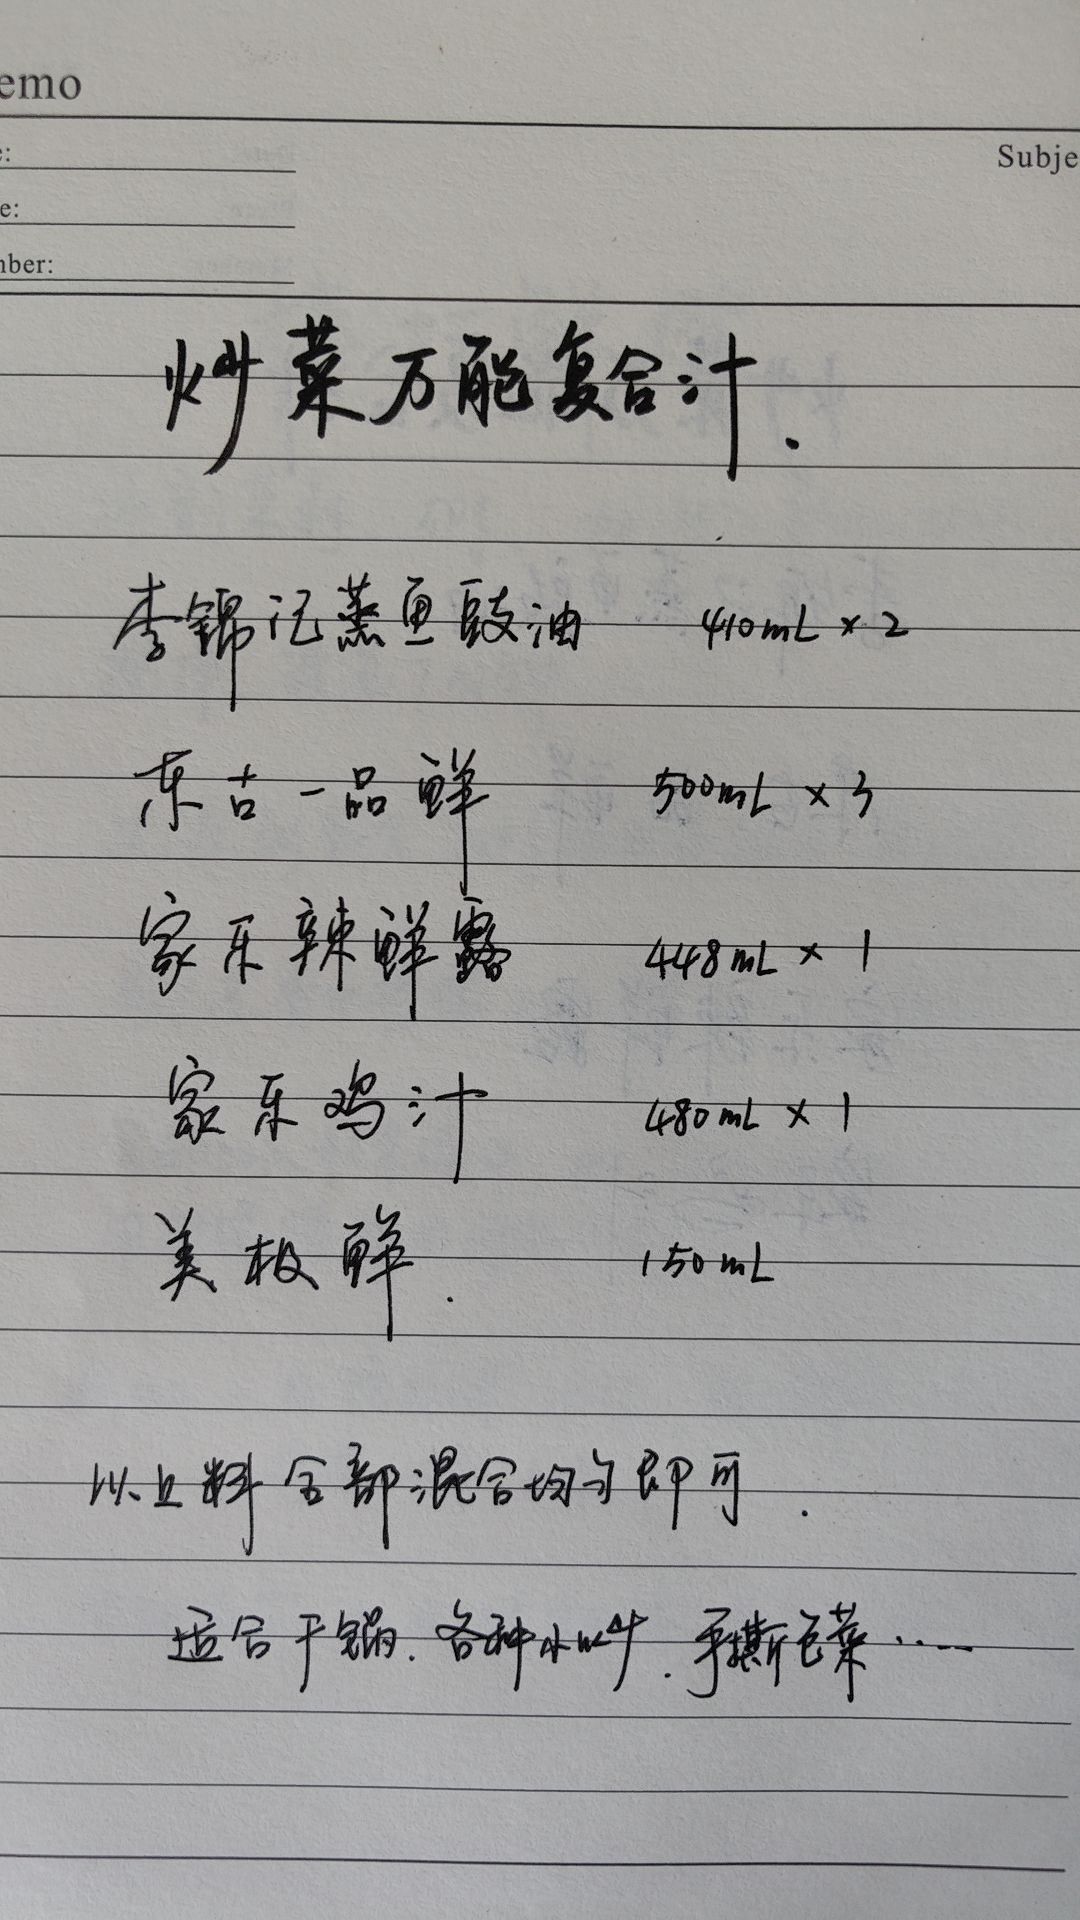 emo
e:
e:
nber:
Subje
炒菜万能复合汁.
李锦记蒸鱼豉油 410mL × 2
东古一品鲜 500mL × 3
家乐辣鲜露 448mL × 1
家乐鸡汁 480mL × 1
美极鲜. 150mL
以上料全部混合均匀即可.
适合干锅.各种小炒.手撕包菜……